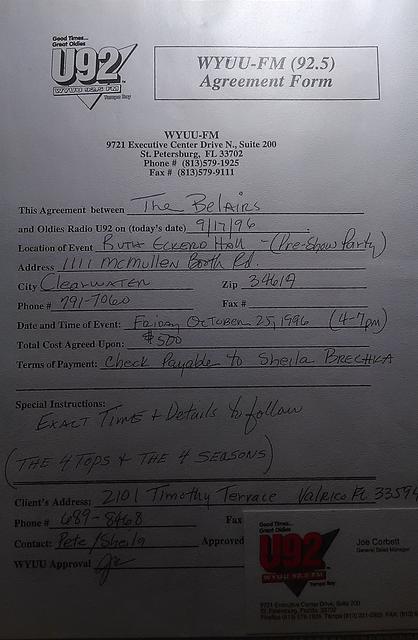 Good Times...
Great Oldies
U92
WYUU 92.5 FM
Tampa Bay
WYUU-FM (92.5)
Agreement Form
WYUU-FM
9721 Executive Center Drive N., Suite 200
St. Petersburg, FL 33702
Phone # (813)579-1925
Fax # (813)579-9111
This Agreement between The BelAirs
and Oldies Radio U92 on (today's date) 9/17/96
Location of Event Ruth Eckerd Hall - (Pre-Show Party)
Address 1111 McMullen Booth Rd.
City Clearwater Zip 34619
Phone # 791-7060 Fax #
Date and Time of Event: Friday October 25, 1996 (4-7pm)
Total Cost Agreed Upon: $500
Terms of Payment: Check Payable to Sheila Brechka
Special Instructions:
Exact Time + Details to follow
(The 4 Tops + The 4 Seasons)
Client's Address: 2101 Timothy Terrace Valrico FL 33594
Phone # 689-8468 Fax
Contact: Pete/Sheila Approved
WYUU Approval
Good Times...
Great Oldies
U92
WYUU 92.5 FM
Tampa Bay
Joe Corbett
General Sales Manager
9721 Executive Center Drive, Suite 200
St. Petersburg, Florida 33702